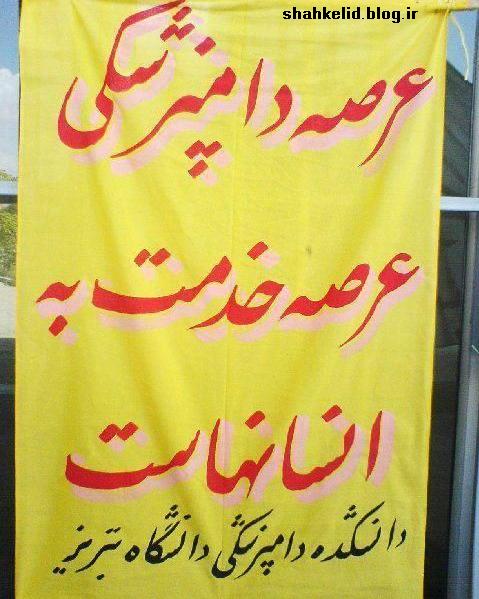 shahkelid.blog.ir
عرصه دامپزشکی
عرصه خدمت به
انسانهاست
دانشکده دامپزشکی دانشگاه تبریز